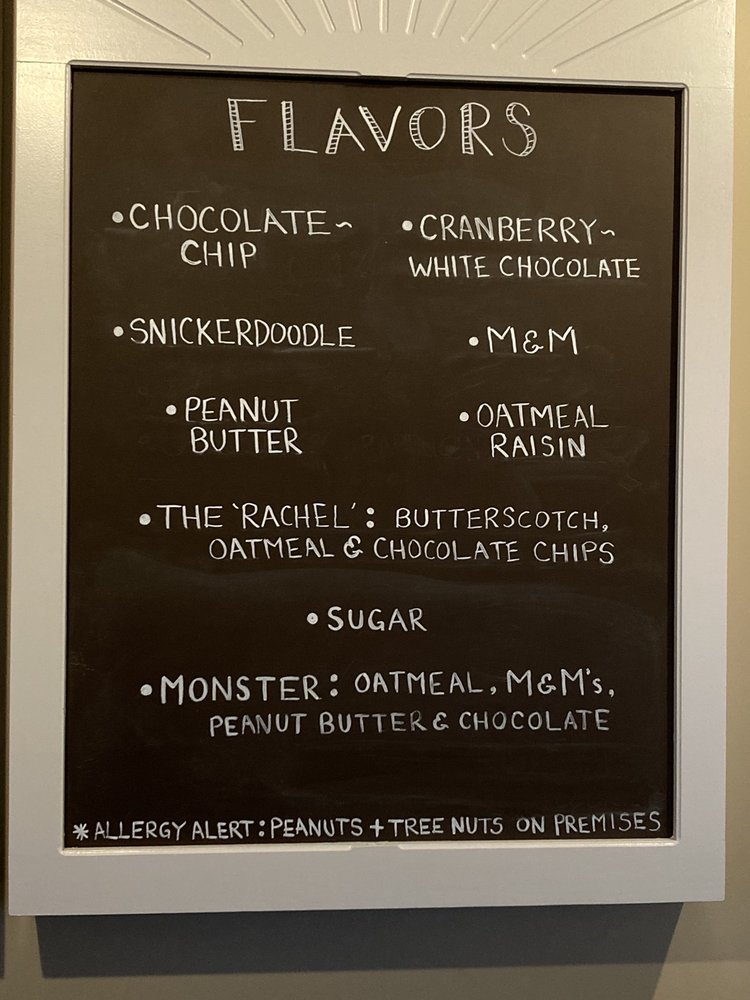 FLAVORS
•CHOCOLATE~
CHIP
•CRANBERRY~
WHITE CHOCOLATE
•SNICKERDOODLE
•M&M
•PEANUT
BUTTER
•OATMEAL
RAISIN
•THE 'RACHEL': BUTTERSCOTCH,
OATMEAL & CHOCOLATE CHIPS
•SUGAR
•MONSTER: OATMEAL, M&M's,
PEANUT BUTTER & CHOCOLATE
*ALLERGY ALERT: PEANUTS + TREE NUTS ON PREMISES